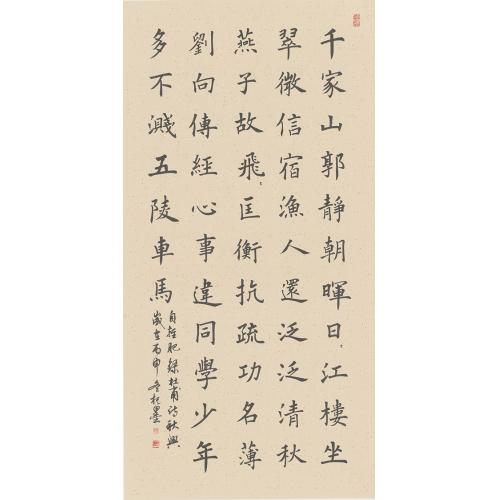 千家山郭靜朝暉日〻江樓坐
翠微信宿漁人還泛泛清秋
燕子故飛〻匡衡抗疏功名薄
劉向傳經心事違同學少年
多不濺五陵車馬
自輕肥錄杜甫詩秋興
歲在丙申冬墨